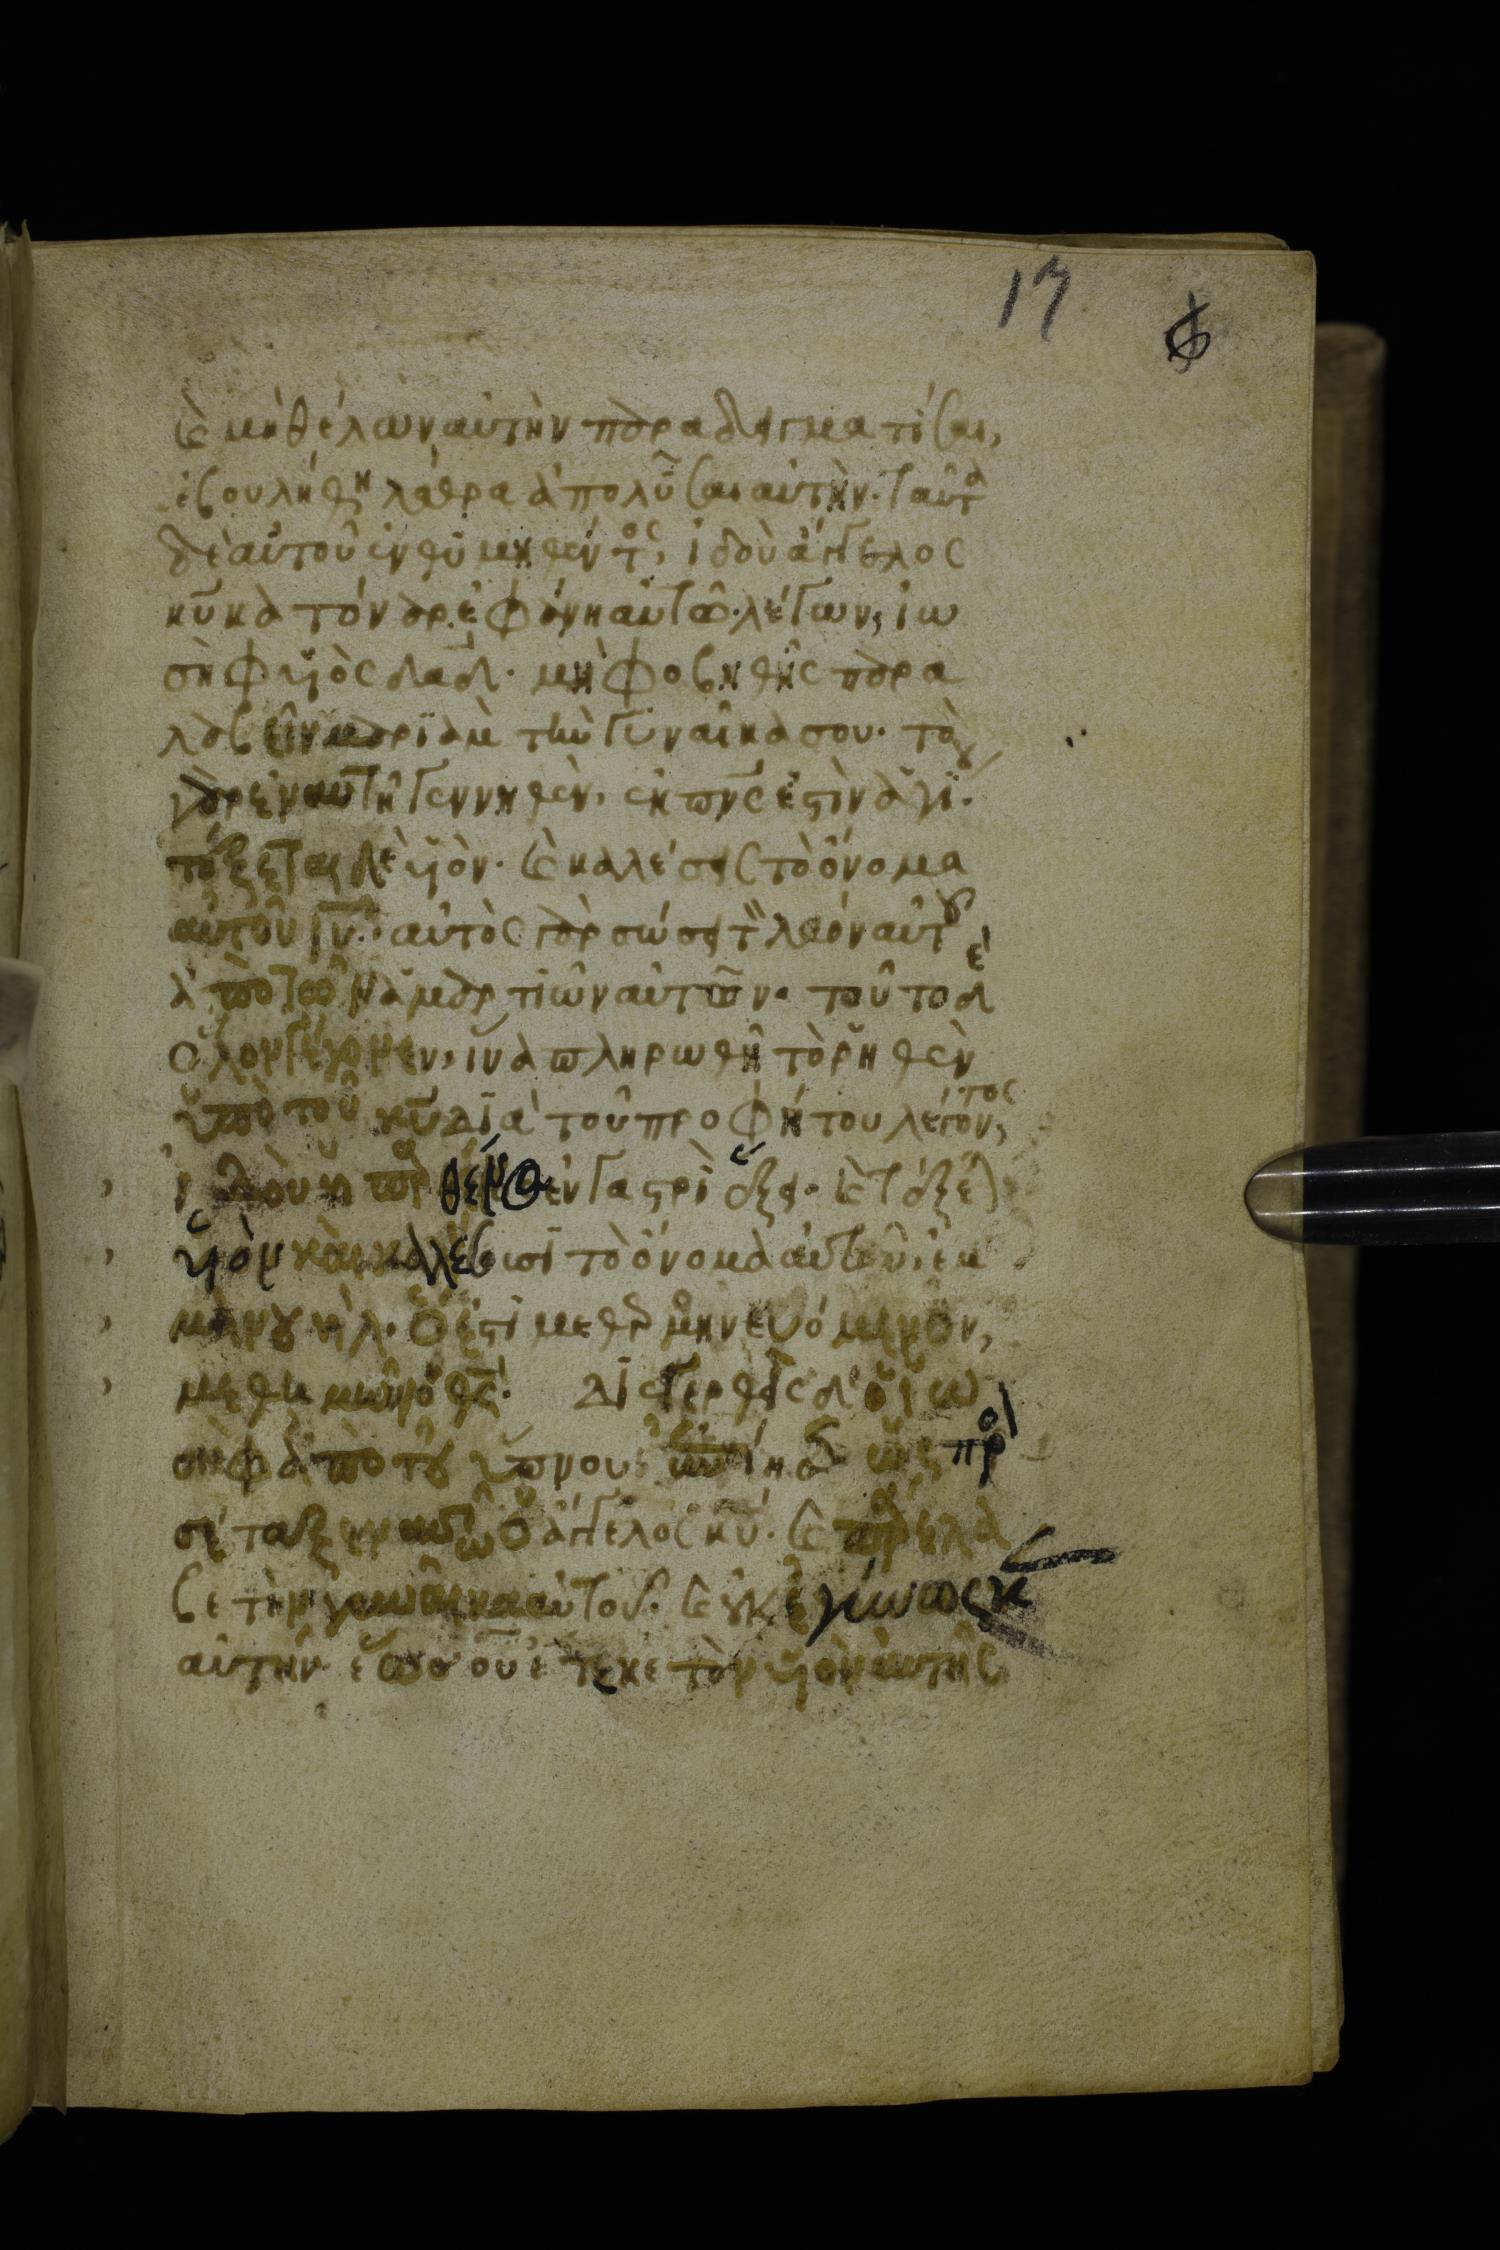 17
καὶ μὴ θέλων αὐτὴν παραδειγματίσαι,
ἐβουλήθη λάθρα ἀπολῦσαι αὐτήν. ταῦτα
δὲ αὐτοῦ ἐνθυμηθέντος, ἰδοὺ ἄγγελος
κυ κατ ὄναρ ἐφάνη αὐτῶ. λέγων, ἰω
σὴφ υἱὸς δαδ. μὴ φοβηθῆς παρα
λαβεῖν μαρϊὰμ τὴν γυναῖκα σου. τὸ
γὰρ ἐν αὐτῆ γεννηθὲν, ἐκ πνς ἐστὶν ἁγίου.
τέξεται δὲ υἱὸν. καὶ καλέσεις τὸ ὄνομα
αὐτοῦ ιν. αὐτὸς γὰρ σώσει τὸν λαὸν αὐτοῦ
ἀπὸ τῶν ἁμαρτιῶν αὐτῶν. τοῦτο δὲ
ὅλον γέγονεν, ἵνα πληρωθῆ τὸ ῥηθὲν
ὑπὸ τοῦ κυ διὰ τοῦ προφήτου λέγοντος,
ἰδοὺ ἡ παρθένος ἐν γαστρὶ ἕξει. καὶ τέξεται
υἱὸν καὶ καλέσουσι τὸ ὄνομα αὐτοῦ, ἐμ
μανουήλ. ὅ ἐστι μεθερμηνευόμενον,
μεθ ἡμῶν ὁ θς. διεγερθεὶς δὲ ὁ ἰω
σὴφ ἀπὸ τοῦ ὕπνου ἐποίησεν ὡς προ
σέταξεν αὐτῶ ὁ ἄγγελος κυ. καὶ παρέλα
βε τὴν γυναῖκα αὐτοῦ. καὶ οὐκ ἐγίνωσκεν
αὐτὴν ἕως οὗ ἔτεκε τὸν υἱὸν αὐτῆς